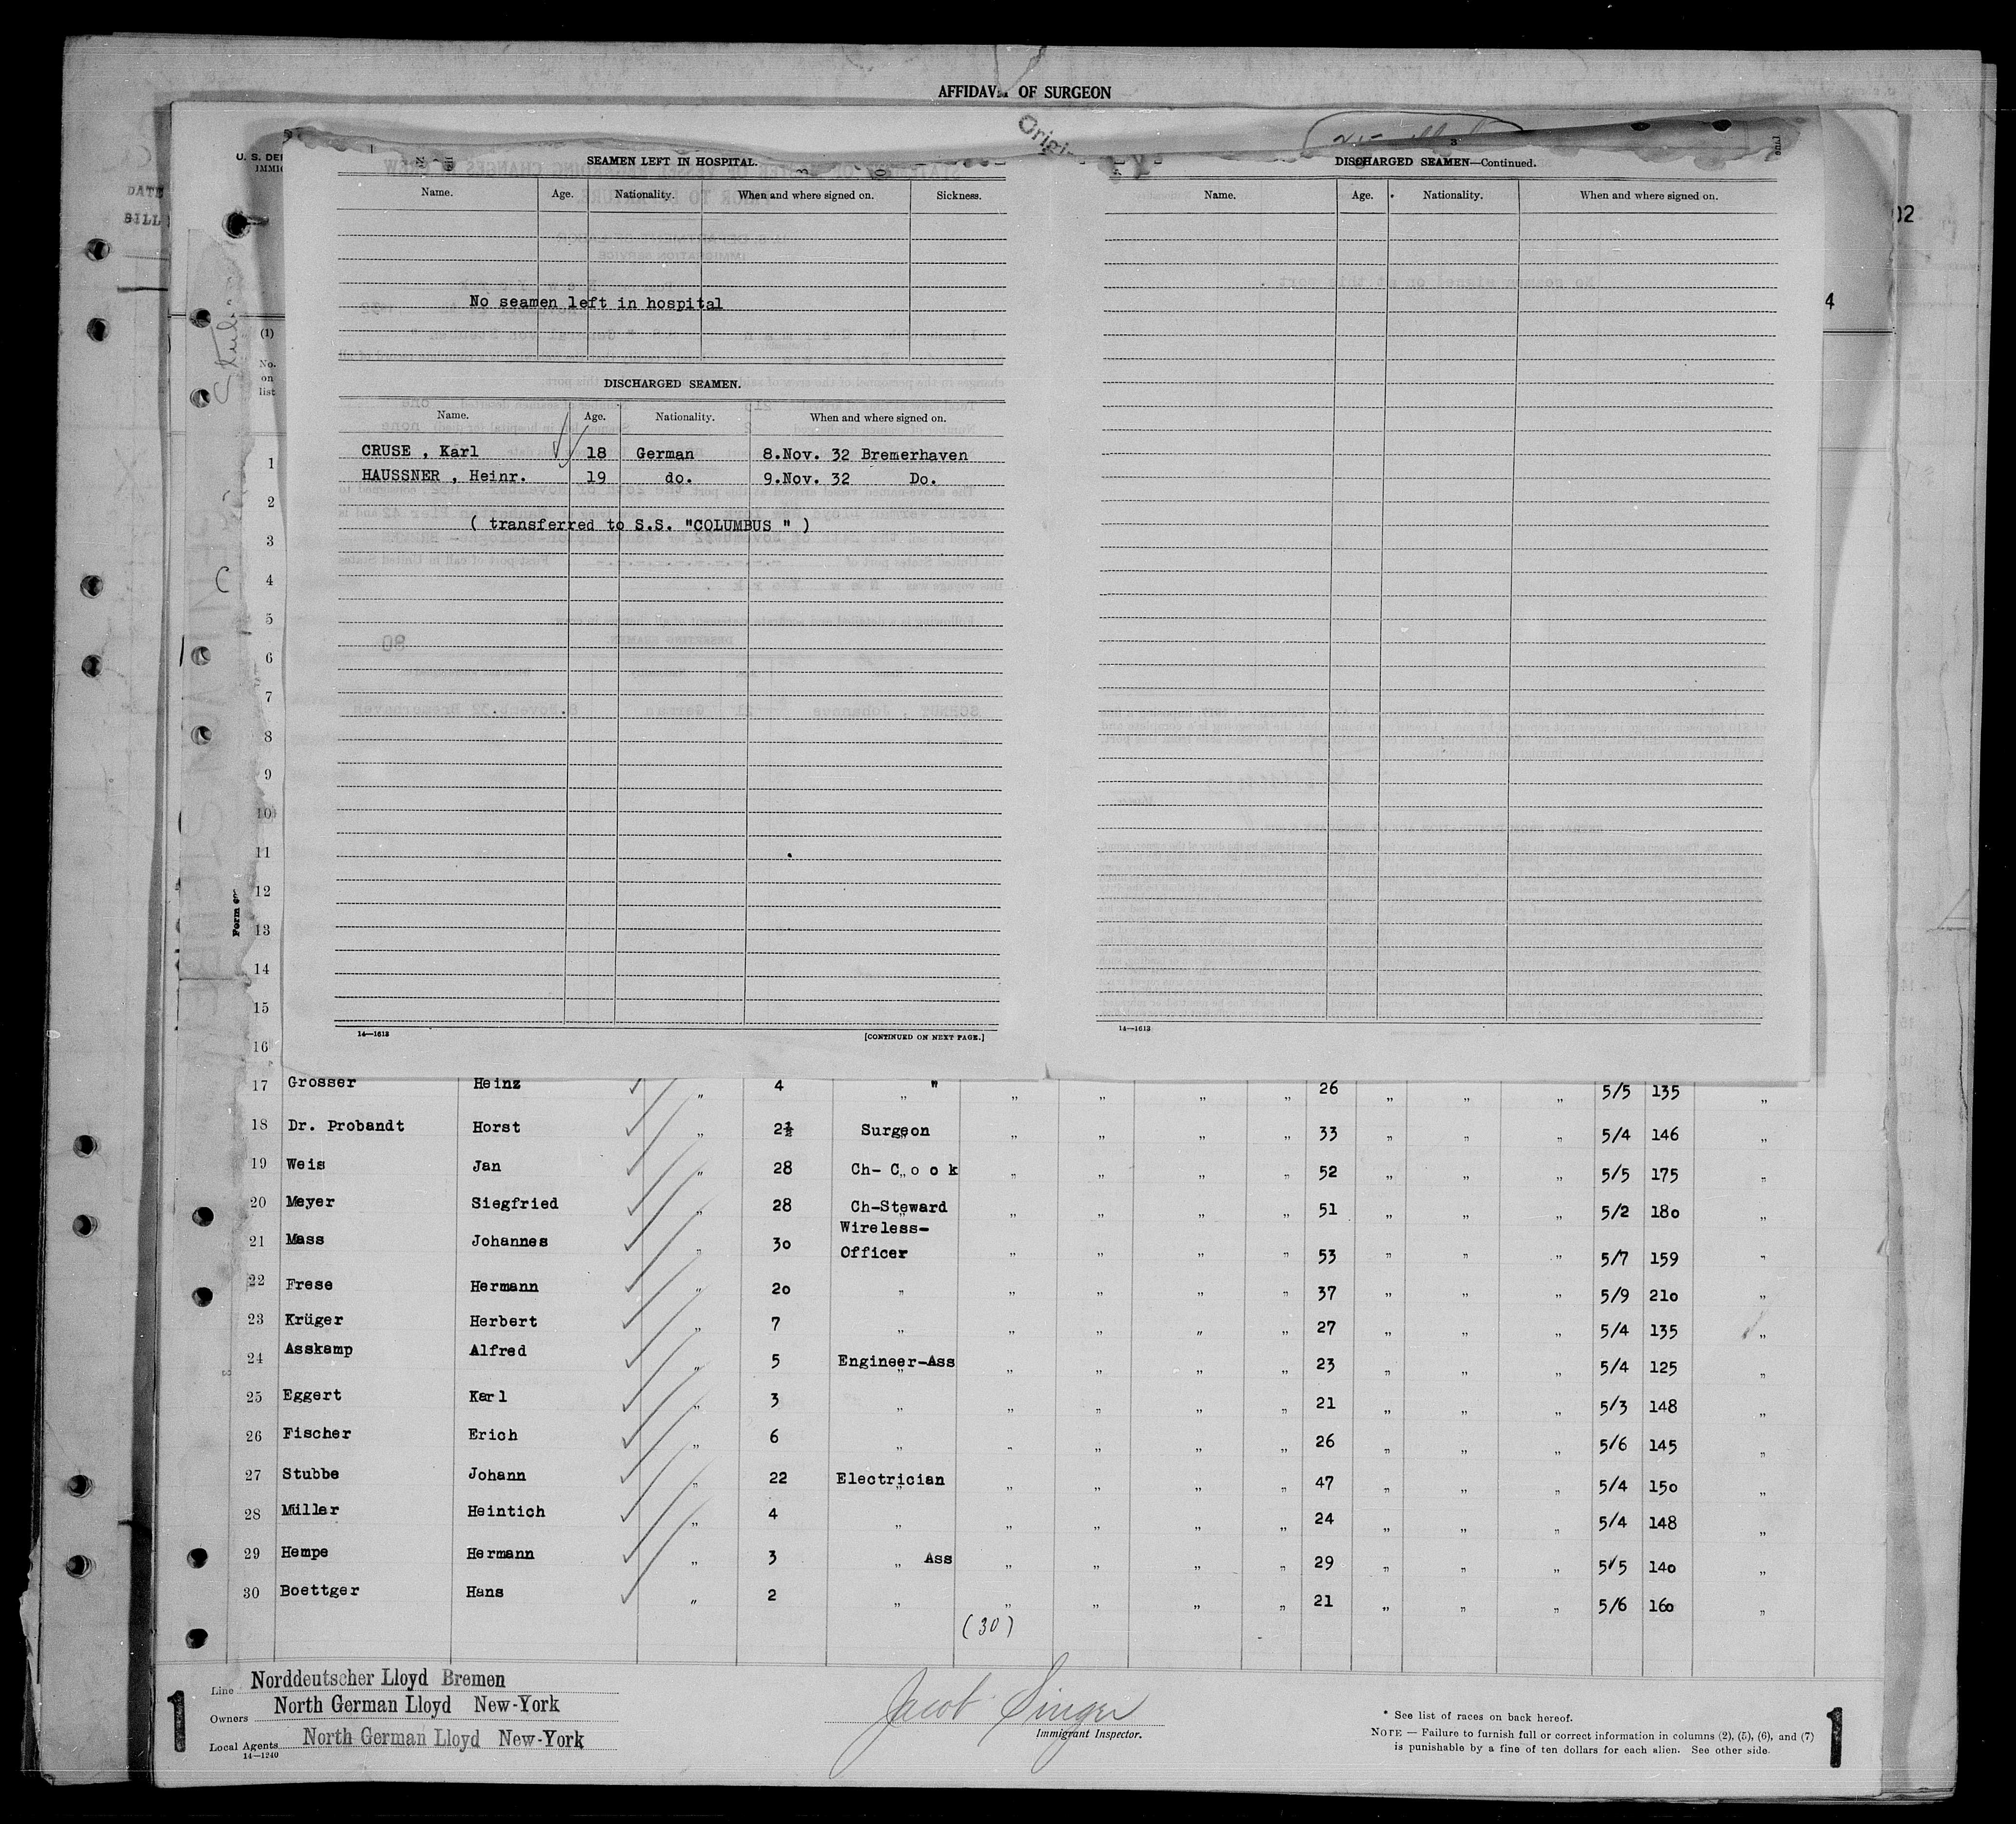 AFFIDAV OF SURGEON
DATE
BILL
U. S. DE
IMMI
Origi
02
4
SEAMEN LEFT IN HOSPITAL.
Name. Age. Nationality. When and where signed on. Sickness.
No seamen left in hospital
DISCHARGED SEAMEN.
Name. Age. Nationality. When and where signed on.
CRUSE , Karl 18 German 8.Nov. 32 Bremerhaven
HAUSSNER , Heinr. 19 do. 9.Nov. 32 Do.
( transferred to S.S. "COLUMBUS " )
14—1613 [CONTINUED ON NEXT PAGE.]
3
DISCHARGED SEAMEN—Continued.
Name. Age. Nationality. When and where signed on.
14—1613
(1)
No.
on
list
1
2
3
4
5
6
7
8
9
10
11
12
13
14
15
16
17 Grosser Heinz " 4 " " " " " " 26 " " " 5/5 135 "
18 Dr. Probandt Horst " 2½ Surgeon " " " " 33 " " " 5/4 146 "
19 Weis Jan " 28 Ch- C o o k " " " " 52 " " " 5/5 175 "
20 Meyer Siegfried " 28 Ch-Steward " " " " 51 " " " 5/2 180 "
21 Mass Johannes " 30 Wireless-
Officer " " " " 53 " " " 5/7 159 "
22 Frese Hermann " 20 " " " " " 37 " " " 5/9 210 "
23 Krüger Herbert " 7 " " " " " 27 " " " 5/4 135 "
24 Asskamp Alfred " 5 Engineer-Ass " " " " 23 " " " 5/4 125 "
25 Eggert Karl " 3 " " " " " 21 " " " 5/3 148 "
26 Fischer Erich " 6 " " " " " 26 " " " 5/6 145 "
27 Stubbe Johann " 22 Electrician " " " " 47 " " " 5/4 150 "
28 Müller Heintich " 4 " " " " " 24 " " " 5/4 148 "
29 Hempe Hermann " 3 " Ass " " " " 29 " " " 5/5 140 "
30 Boettger Hans " 2 " " " " " 21 " " " 5/6 160 "
(30)
Line Norddeutscher Lloyd Bremen
Owners North German Lloyd New-York
Local Agents North German Lloyd New-York
14—1240
1
Jacob Singer
Immigrant Inspector.
* See list of races on back hereof.
NOTE — Failure to furnish full or correct information in columns (2), (5), (6), and (7)
is punishable by a fine of ten dollars for each alien. See other side.
1